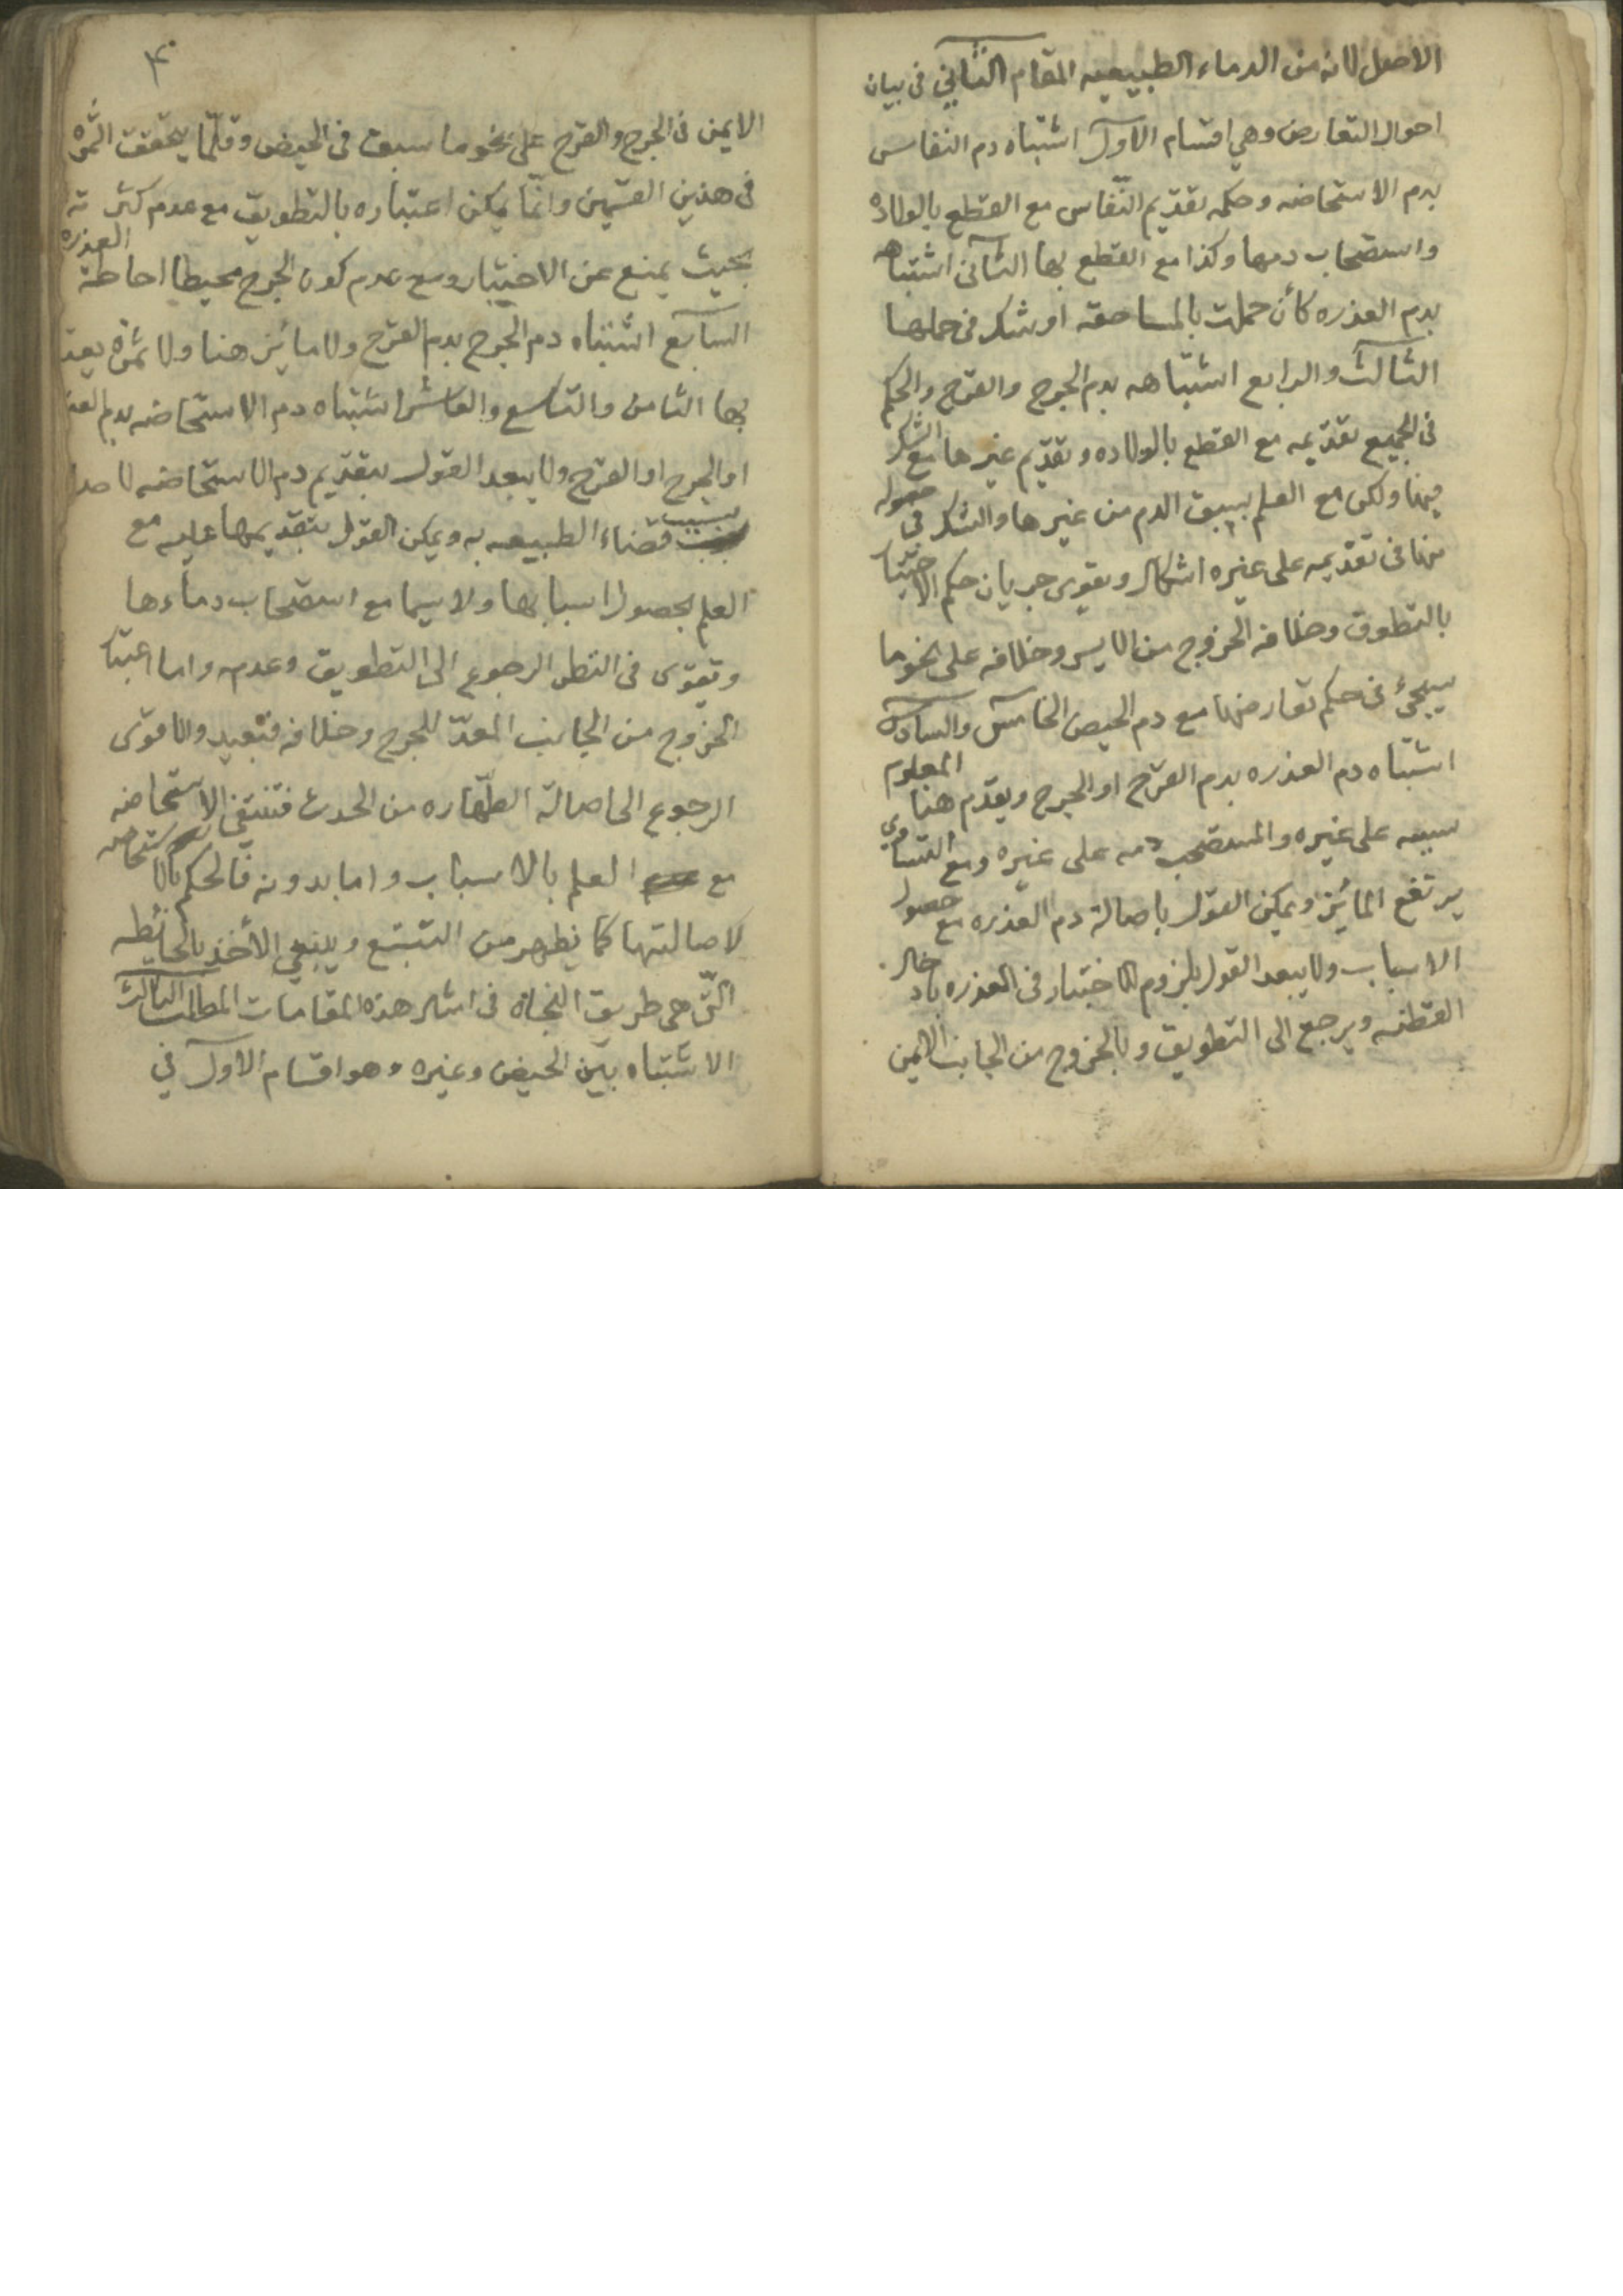 الاصل لانه من الدماء الطبيعيه المقام الثاني في بيان
احوال التعارض وهي اقسام الاول اشتباه دم النفاس
بدم الاستحاضه وحكمه تقديم النفاس مع القطع بالولاده
واستصحاب دمها وكذا مع القطع بها الثاني اشتباهه
بدم العذره كأن حملت بالمساحقه او شك في حملها
الثالث والرابع اشتباهه بدم الجرح والقرح والحكم
في الجميع تقديمه مع القطع بالولاده وتقديم غيرها مع الشك
فيها ولكن مع العلم بسبق الدم من غيرها والشك في حصوله
منها في تقديمه على غيره اشكال ويقوى جريان حكم الاختبار
بالتطوق وخلافه الخروج من الايسر وخلافه على نحو ما
سيجئ في حكم تعارضها مع دم الحيض الخامس والسادس
اشتباه دم العذره بدم القرح او الجرح ويقدم هنا المعلوم
سببه على غيره والمستصحب دمه على غيره ومع التساوي
يرتفع المائز ويمكن القول باصالة دم العذره مع حصول
الاسباب ولا يبعد القول بلزوم الاختبار في العذره بادخال
القطنه ويرجع الى التطويق وبالخروج من الجانب الايمن
۴۰
الايمن في الجرح والقرح على نحو ما سبق في الحيض وقلّما يتحقق الثمرة
في هذين القسمين وانّما يمكن اعتباره بالتطويق مع عدم كثرته
بحيث يمنع عن الاختبار ومع عدم كون الجرح محيطا احاطة العذره
السابع اشتباه دم الجرح بدم القرح ولا مائز هنا ولا ثمرة يعتد
بها الثامن والتاسع والعاشر اشتباه دم الاستحاضه بدم العذ
او الجرح او القرح ولا يبعد القول بتقديم دم الاستحاضه لاصا
بسبب قضاء الطبيعه به ويمكن القول بتقديمها عليه مع
العلم بحصول اسبابها ولا سيما مع استصحاب دماءها
وتقوى في النظر الرجوع الى التطويق وعدمه واما اعتبار
الخروج من الجانب المعدّ للجرح وخلافه فبعيد والاقوى
الرجوع الى اصالة الطهاره من الحدث فتنتفي الاستحاضه
مع العلم بالاسباب واما بدونه فالحكم بالاستحاضه
لاصالتها كما يظهر من التتبع وينبغي الأخذ بالحائطه
التّي هي طريق النجاة في امثال هذه المقامات المطلب الثالث
الاشتباه بين الحيض وغيره وهو اقسام الاول في